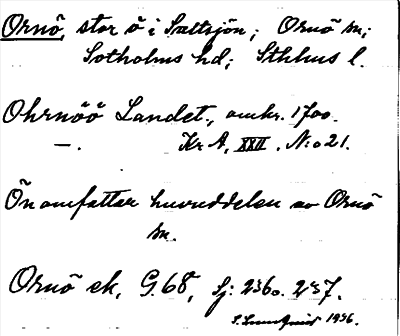 Ornö, stor ö i Saltsjön; Ornö sn;
Sotholms hd; Sthlms l.
Ohrnöö Landet, omkr. 1700.
—. Kr A, XXII, N:o 21.
Ön omfattar huvuddelen av Ornö
sn.
Ornö ek, G. 68, Sj: 2360. 237.
S. Lundquist 1936.